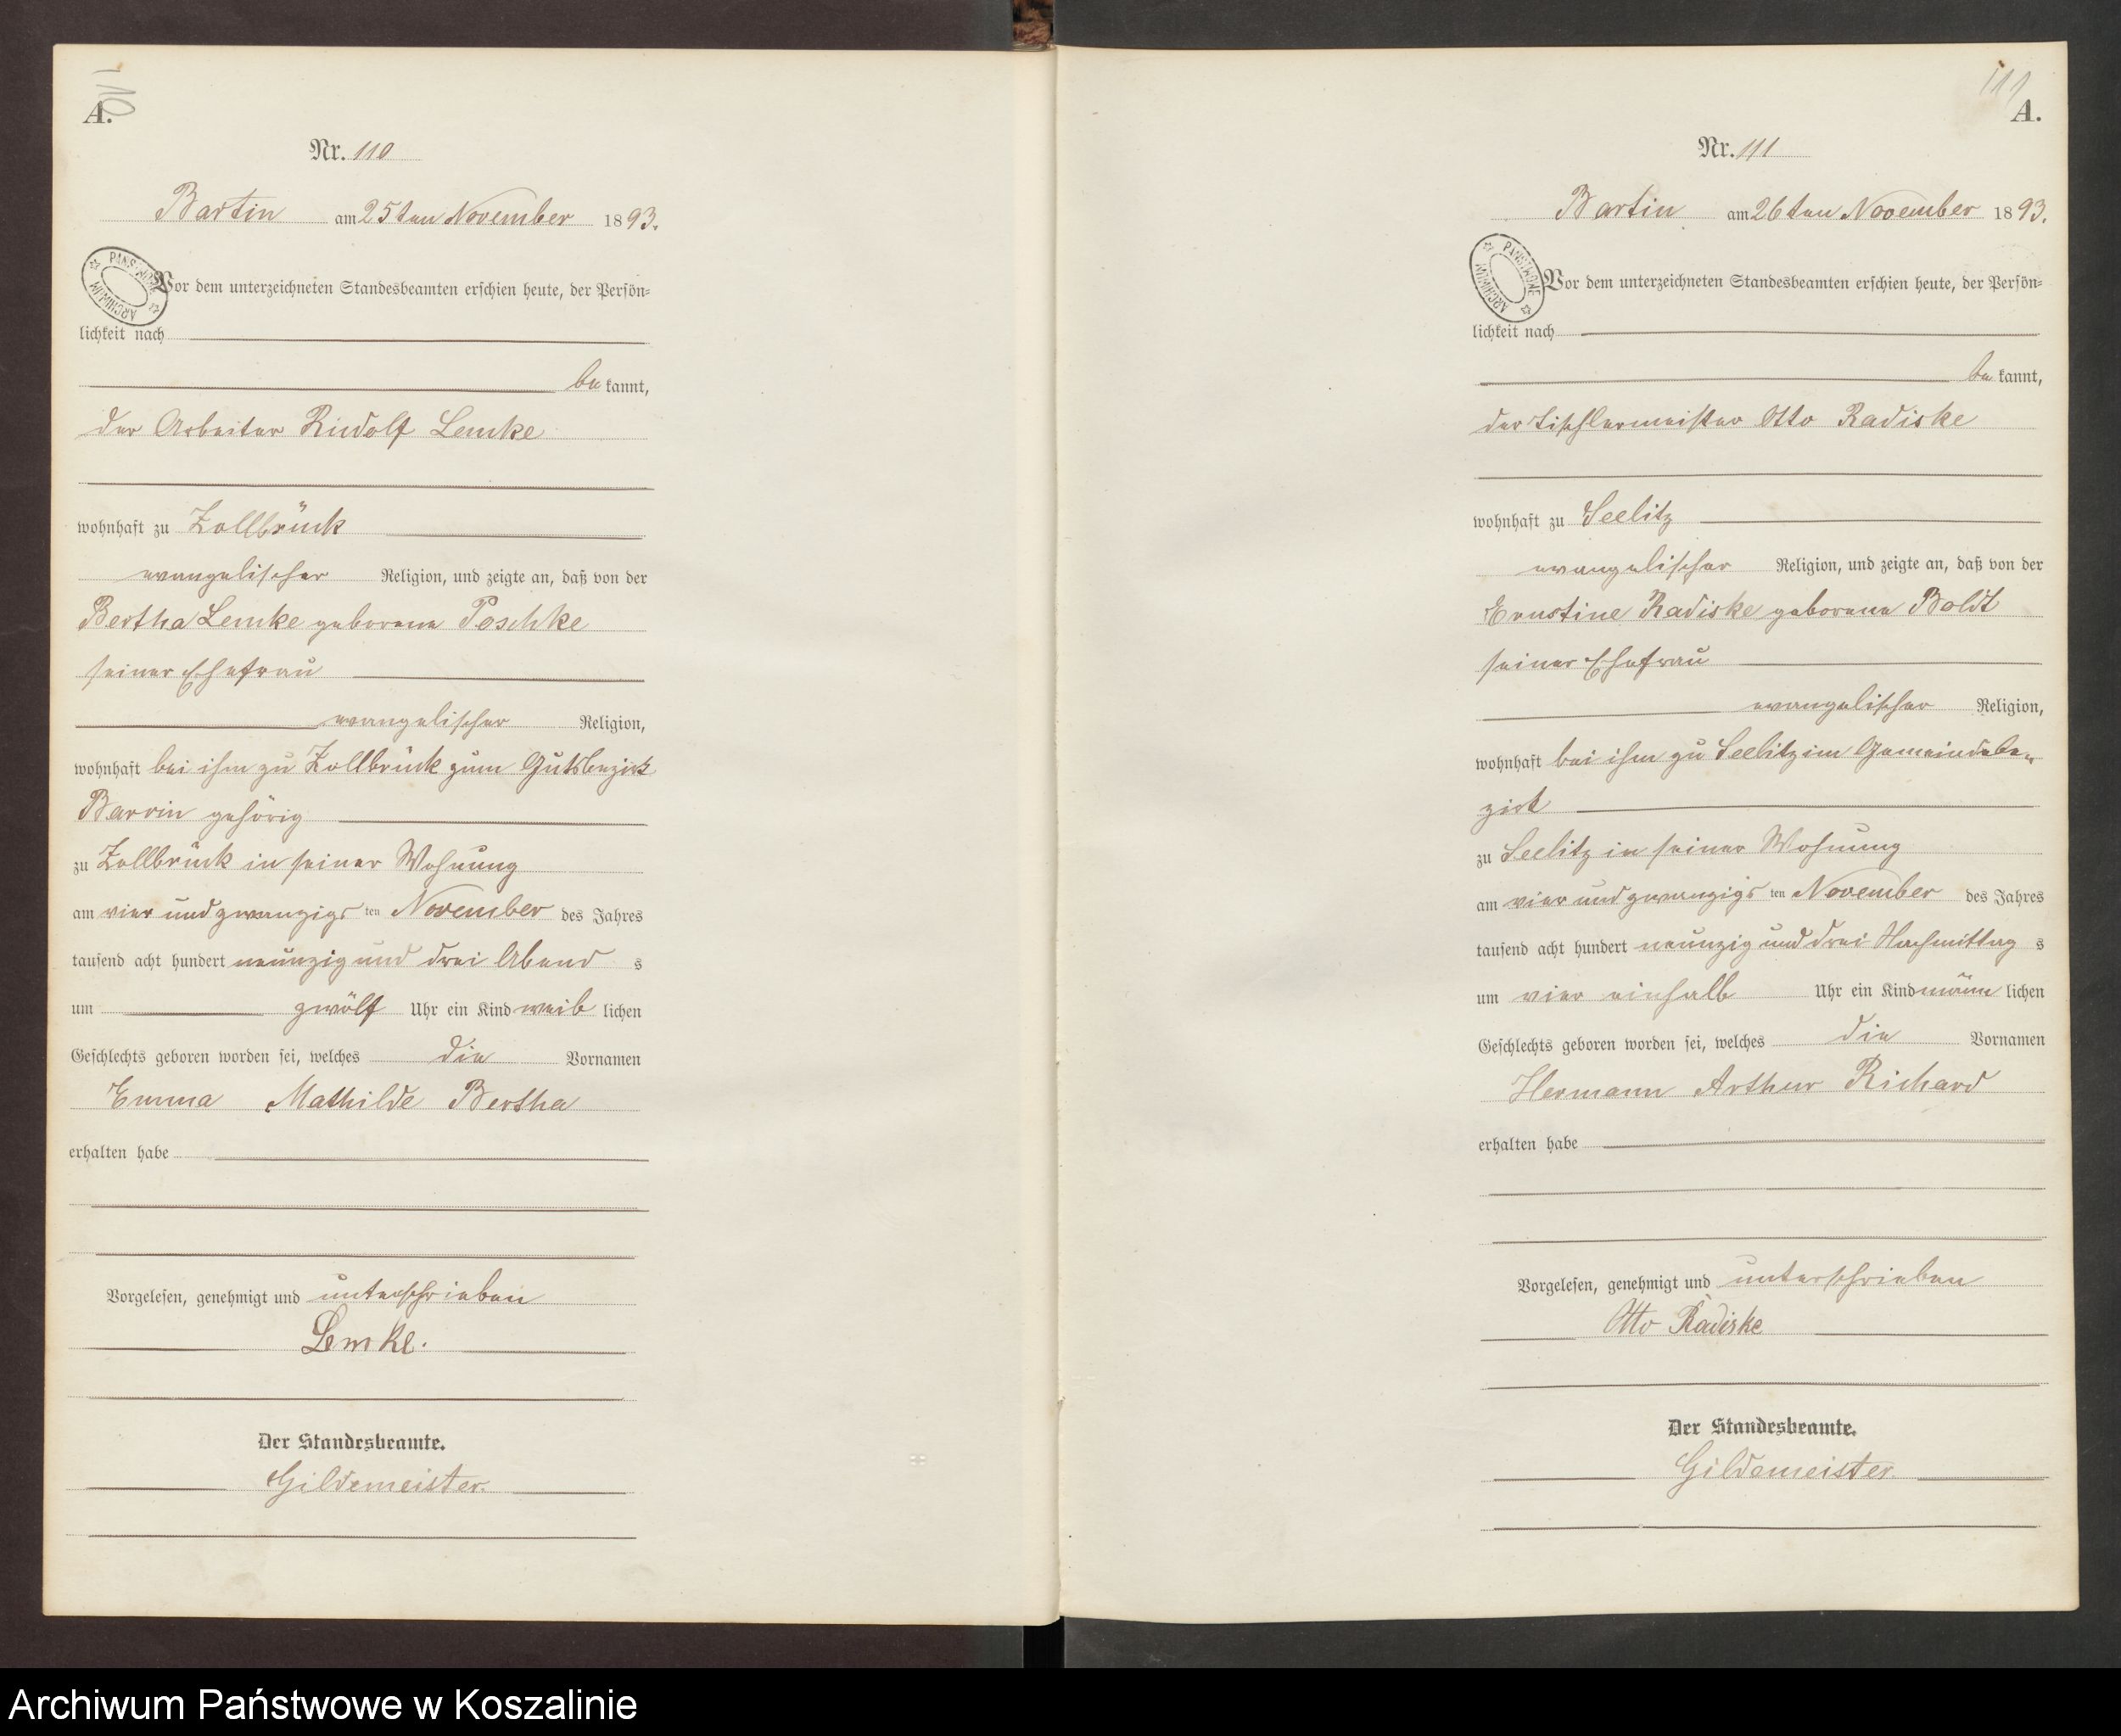 110
A.
Nr. 110
Bartin am 25ten November 1893.
PAŃSTWOWE ARCHIWUM
Vor dem unterzeichneten Standesbeamten erschien heute, der Persön-
lichkeit nach
be kannt,
der Arbeiter Rudolf Lemke
wohnhaft zu Zollbrück
evangelischer Religion, und zeigte an, daß von der
Bertha Lemke geborene Poschke
seiner Ehefrau
evangelischer Religion,
wohnhaft bei ihm zu Zollbrück zum Gutsbezirk
Barvin gehörig
zu Zollbrück in seiner Wohnung
am vier und zwanzigsten November des Jahres
tausend acht hundert neunzig und drei Abends
um zwölf Uhr ein Kind weiblichen
Geschlechts geboren worden sei, welches die Vornamen
Emma Mathilde Bertha
erhalten habe
Vorgelesen, genehmigt und unterschrieben
Lemke.
Der Standesbeamte.
Gildemeister.
111
A.
Nr. 111
Bartin am 26ten November 1893.
PAŃSTWOWE ARCHIWUM
Vor dem unterzeichneten Standesbeamten erschien heute, der Persön-
lichkeit nach
be kannt,
der Tischlermeister Otto Radiske
wohnhaft zu Seelitz
evangelischer Religion, und zeigte an, daß von der
Ernstine Radiske geborene Boldt
seiner Ehefrau
evangelischer Religion,
wohnhaft bei ihm zu Seelitz im Gemeindebe-
zirk
zu Seelitz in seiner Wohnung
am vier und zwanzigsten November des Jahres
tausend acht hundert neunzig und drei Nachmittags
um vier einhalb Uhr ein Kind männlichen
Geschlechts geboren worden sei, welches die Vornamen
Hermann Arthur Richard
erhalten habe
Vorgelesen, genehmigt und unterschrieben
Otto Radiske
Der Standesbeamte.
Gildemeister.
Archiwum Państwowe w Koszalinie